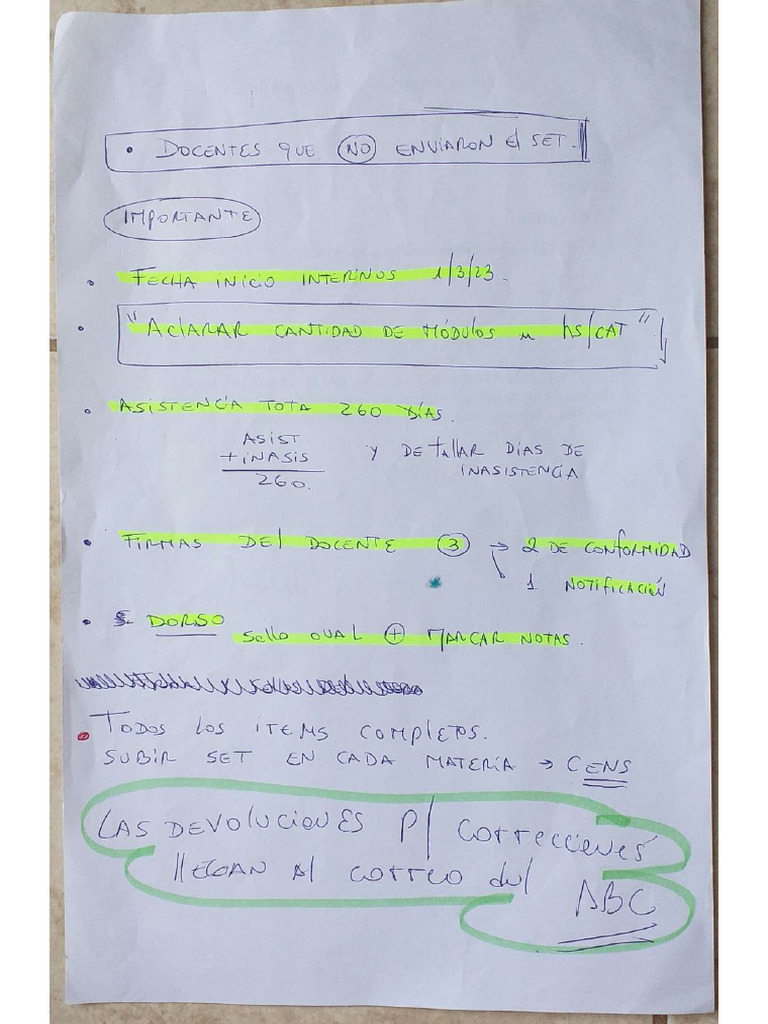 • DOCENTES QUE NO ENVIARON El SET.
IMPORTANTE
• FECHA INICIO INTERINOS 1/3/23.
• "AclARAR CANTIDAD DE MÓDULOS u HS/CAT"
• ASISTENCIA TOTA 260 DÍAS.
ASIST
+ INASIS
260.
Y DETAllAR DÍAS DE
INASISTENCIA
• FIRMAS DEl DOCENTE 3 → 2 DE CONFORMIDAD
1 NOTIFICACIÓN
• DORSO Sello OVAL + MARCAR NOTAS.
• TODOS LOS ITEMS COMPLETOS.
SUBIR SET EN CADA MATERIA → CENS
LAS DEVOLUCIONES P/ CORRECCIONES
llEGAN Al CORREO del
ABC